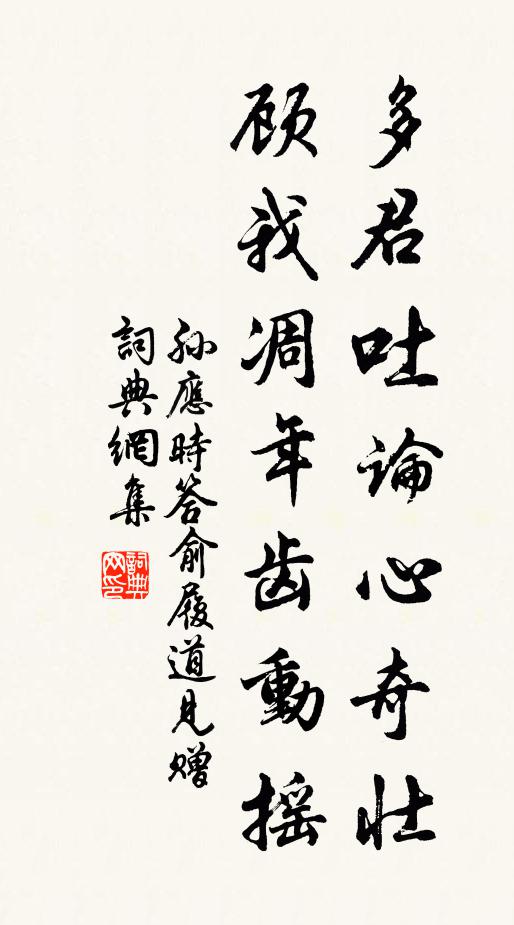 多君吐論心奇壯
顾我凋年齿動摇
孙應時答俞履道見赠
詞典網集
詞典
网印